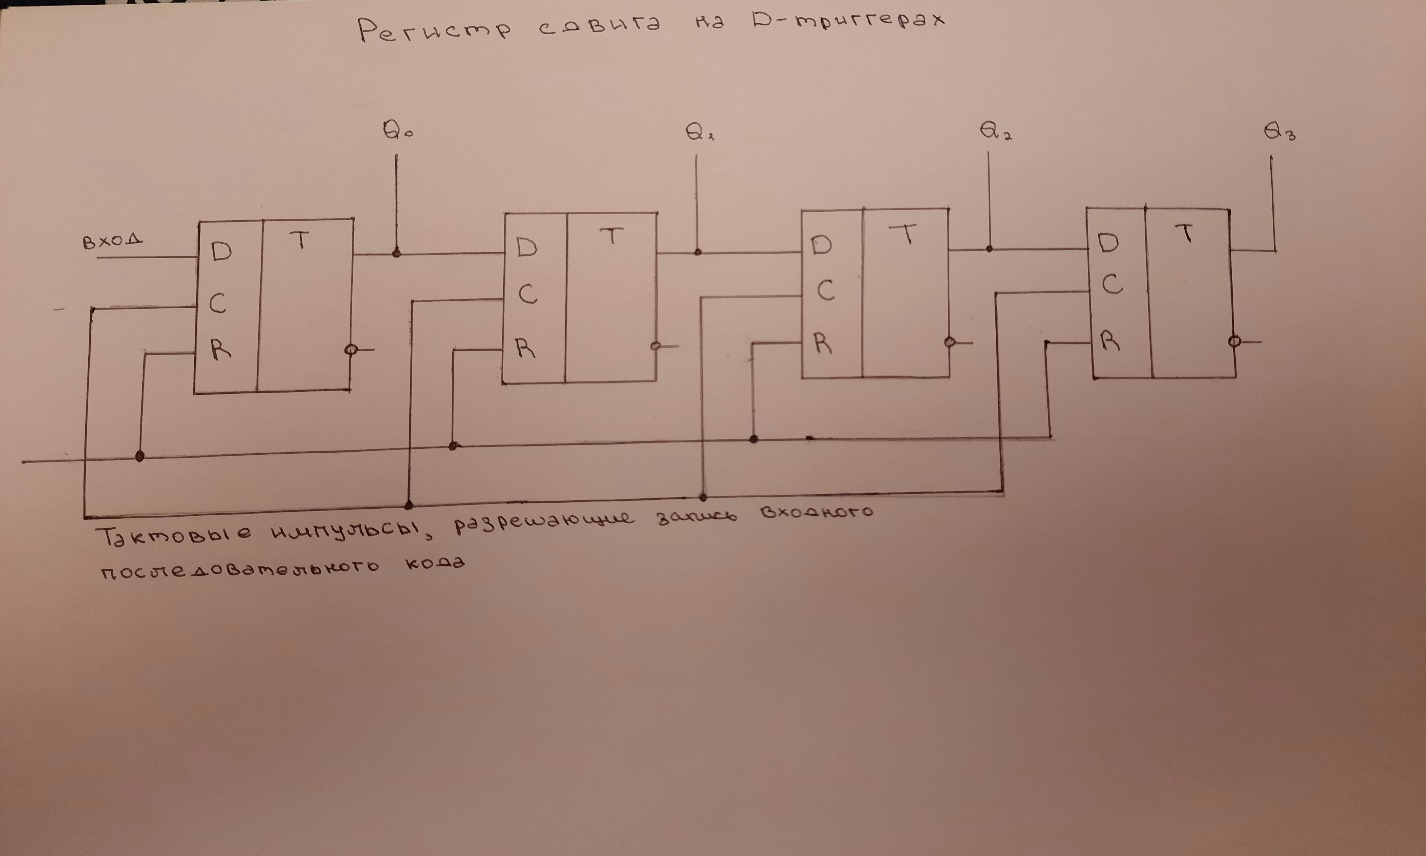 Регистр сдвига на D-триггерах
Q₀ Q₁ Q₂ Q₃
вход
D T D T D T D T
C C C C
R R R R
Тактовые импульсы, разрешающие запись входного
последовательного кода